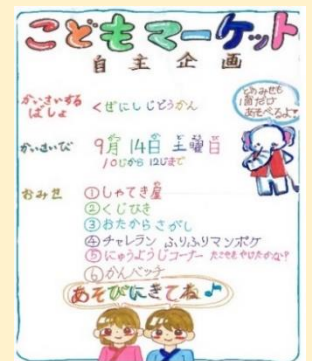 こどもマーケット
自主企画
かいさいする
ばしょ
くぜにしじどうかん
どおみせも
1回だけ
あそべるよ♥
かいさいび
9月14日土曜日
10じから12じまで
おみせ
①しゃてき屋
②くじひき
③おたからさがし
④チャレラン ふりふりマンポケ
⑤にゅうようじコーナー
⑥かんバッチ
あそびにきてね♪